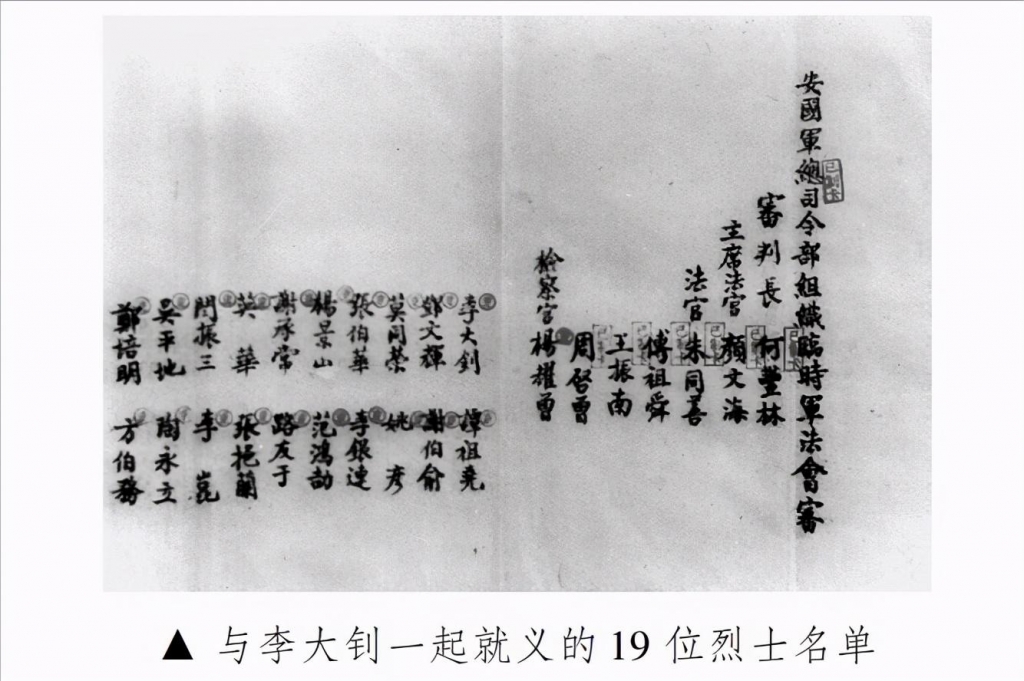 安國軍總司令部組織臨時軍法會審
已制卡
審判長 何豐林
主席法官 顏文海
法官 朱同善
傅祖舜
王振南
周啓曾
檢察官 楊耀曾
李大釗 譚祖堯
鄧文輝 謝伯俞
莫同榮 姚彥
張伯華 李銀連
楊景山 范鴻劼
謝承常 路友于
英華 張挹蘭
閆振三 李崑
吳平地 陶永立
鄭培明 方伯務
▲ 与李大钊一起就义的 19 位烈士名单